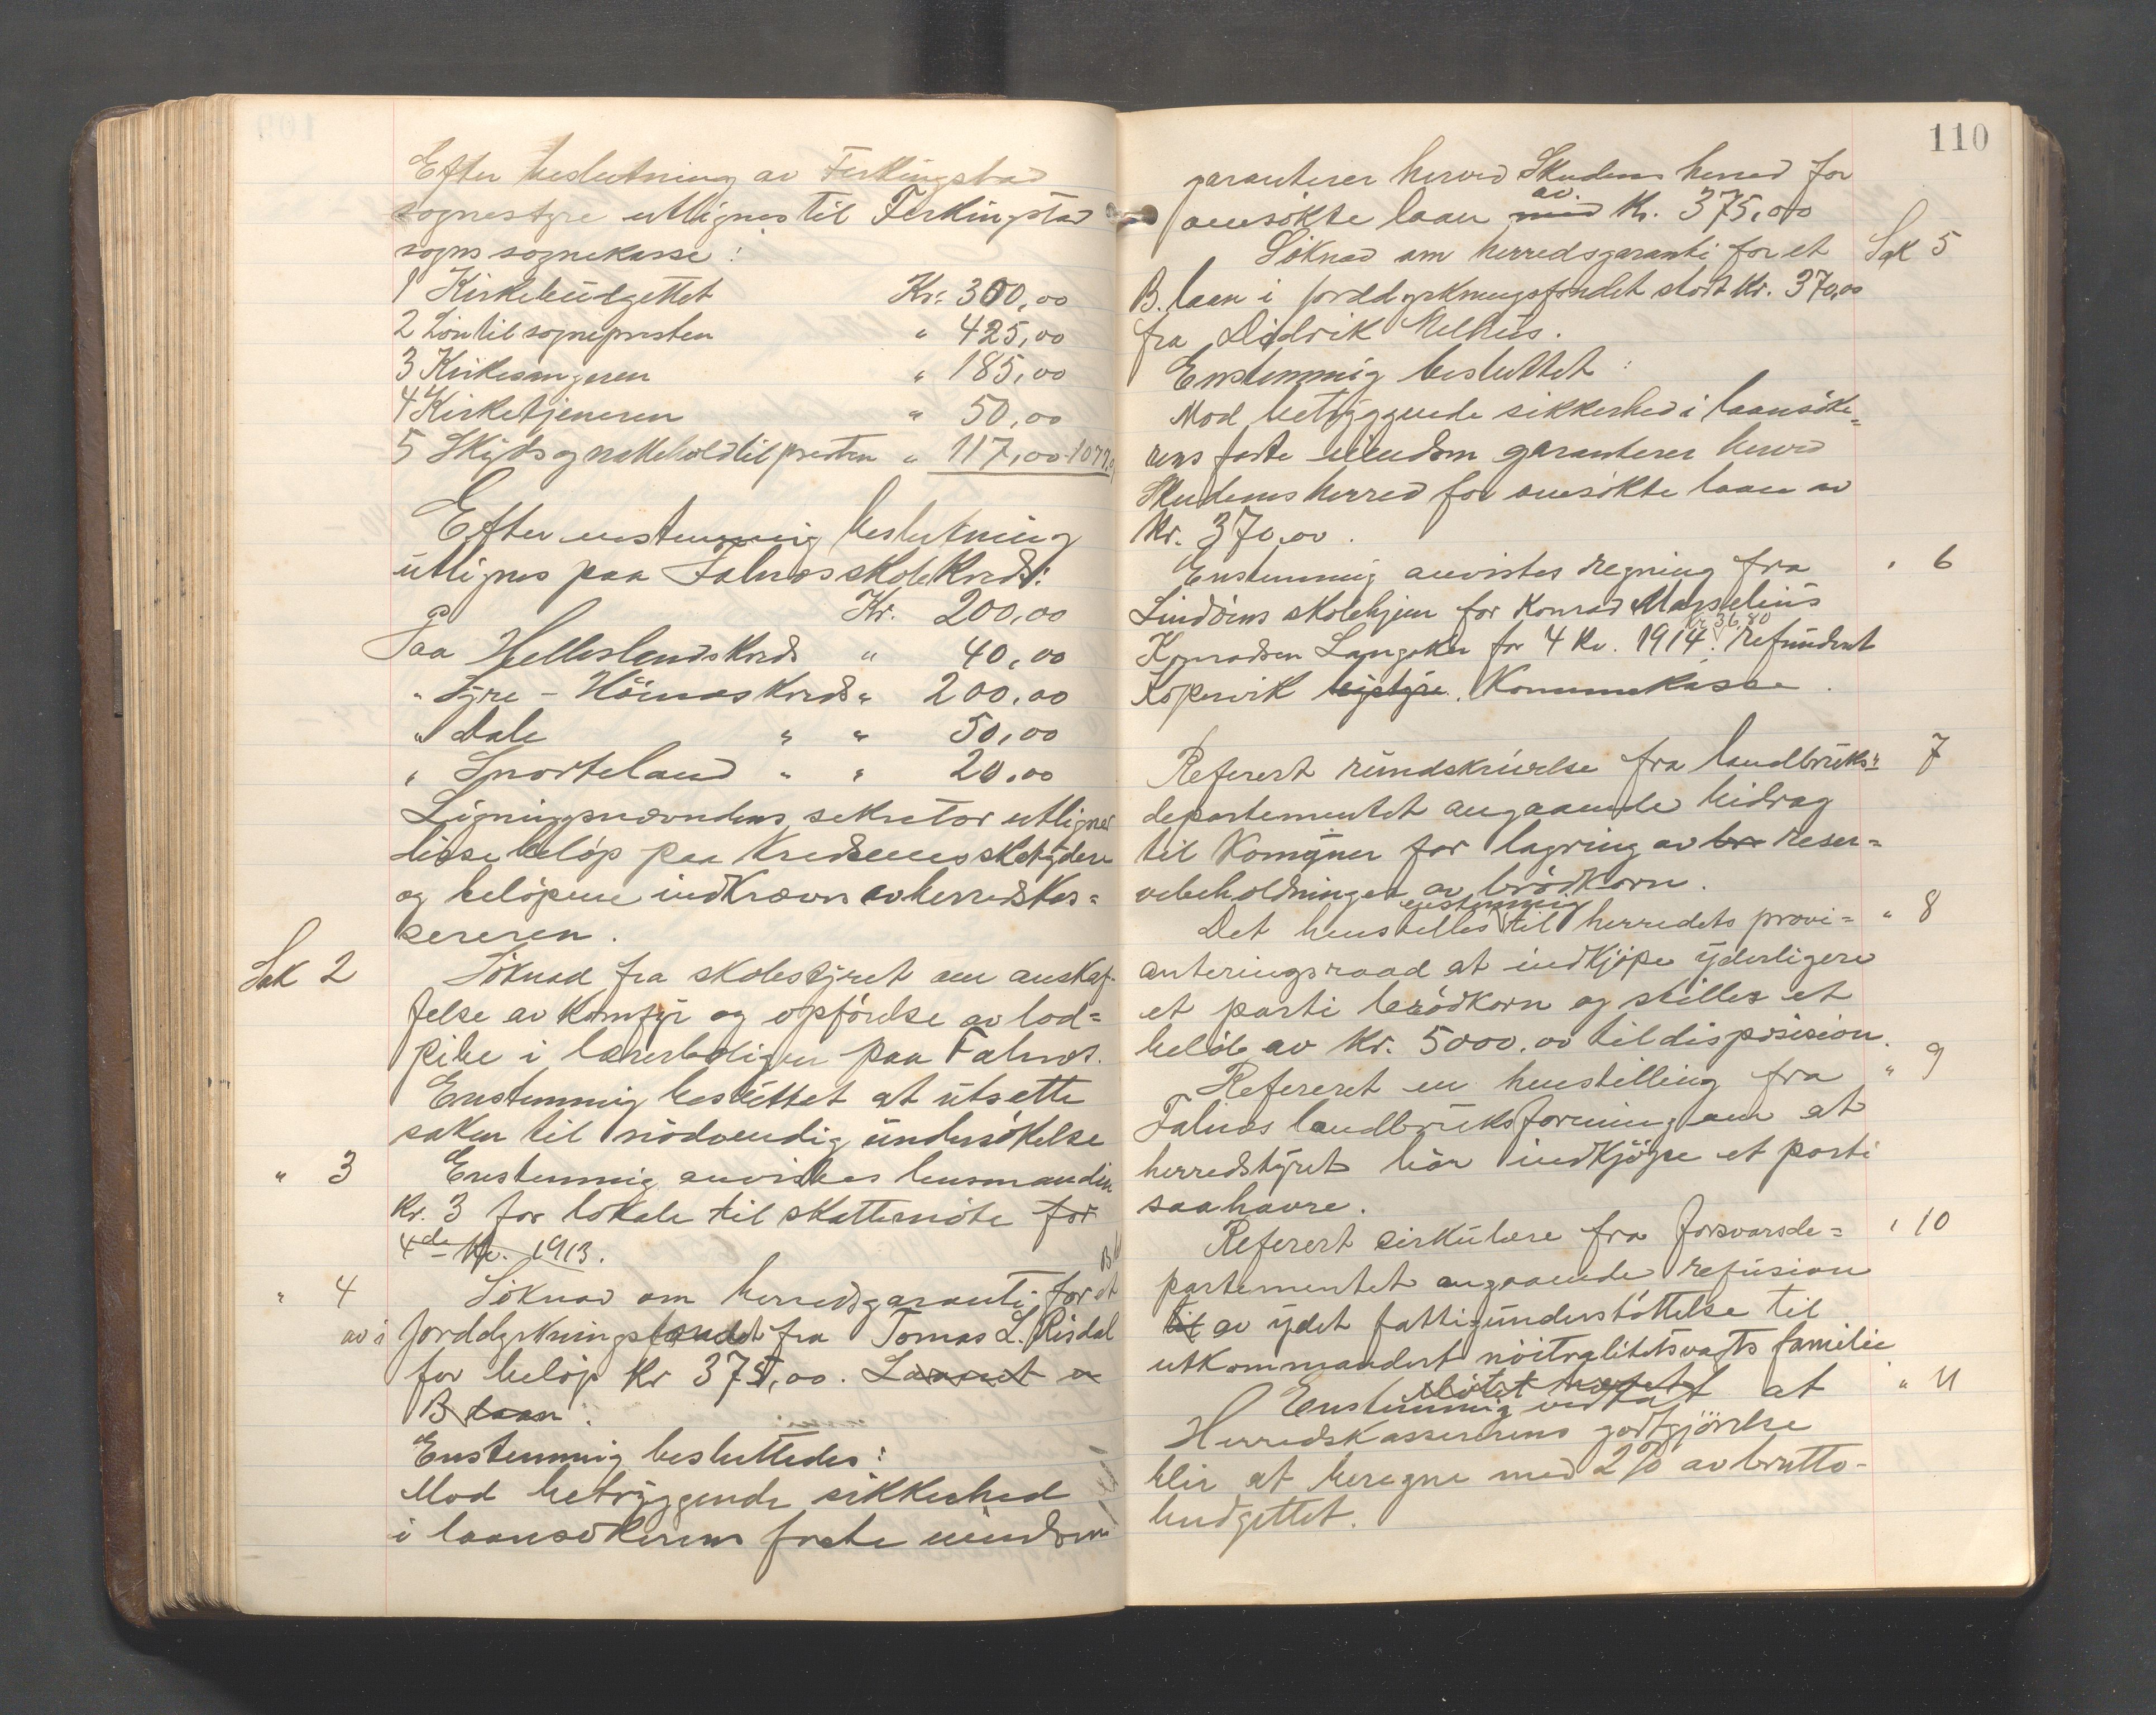 Efter beslutning av Ferkingstad
sognestyre utlignes til Ferkingstad
sogns sognekasse:
1 Kirkebudgettet Kr. 300,00
2 Løn til sognepresten " 425,00
3 Kirkesangeren " 185,00
4 Kirketjeneren " 50,00
5 Skyds og natteholdtil presten " 117,00 - 1077,
Efter enstemmig beslutning
utlignes paa Falnes skolekreds:
Kr. 200,00
Paa Hellesland skreds " 40,00
" Syre - Hönnes kreds " 200,00
" Dale " " 50,00
" Snorteland " " 20,00
Ligningsnævndens sekretær utligner
disse beløp paa kredsenes skatydere
og beløpene indkræves av herredskas=
sereren.
Sak 2 Söknad fra skolestyret om anskaf-
felse av komfyr og opförelse av lod=
pibe i lærerboligen paa Falnes.
Enstemmig besluttet at utsette
saken til nödvendig undersökelse
" 3 Enstemmig anvistes husmandin
Kr. 3 for lokale til skattemöte for
4de Kv. 1913.
" 4 Söknad om herredsgaranti for et B
av i Jorddyrkningsfondet fra Tomas L. Risdal
for beløp Kr 375,00. Laanet er
B laan.
Enstemmig besluttedes:
Mod betryggende sikkerhed
i laansøkerens faste eiendom
110
garanterer herved Skudenes herred for
ansökte laan med av Kr. 375,00
Söknad om herredsgaranti for et Sak 5
B. laan i jorddyrkningsfondet stort Kr. 370,00
fra Didrik Melhus.
Enstemmig besluttet:
Mod betryggende sikkerhed i laansöke=
rens faste eiendom garanterer herved
Skudenes herred for ansökte laan av
Kr. 370,00.
Enstemmig anvistes regning fra " 6
Lindöens skolehjem for Konrad Marselius
Konradsen Langaker for 4 Kv. 1914. Kr 36,80 refunderet
Kopervik bystyre. Kommunekasse.
Referert rundskrivelse fra landbruks= 7
departementet angaaende bidrag
til Komyner for lagring av br reser=
vebeholdninger av brödkorn.
Det henstilles enstemmig til herredets provi= " 8
anteringsraad at indkjöpe yderligere
et parti brödkorn og stilles et
belöb av Kr. 5000,00 til disposision.
Refereret en henstilling fra " 9
Falnes landbruksforening om at
herredstyret bör indkjöpe et parti
saahavre.
Referert cirkulære fra forsvarsde= " 10
partementet angaaende refusion
til av ydet fattigunderstöttelse til
utkommandert nöitralitetsvagts familie
Mötet hævet
Enstemmig vedtat at " 11
Herredskassererens godtgjörelse
blir at beregne med 2% av brutto-
budgettet.